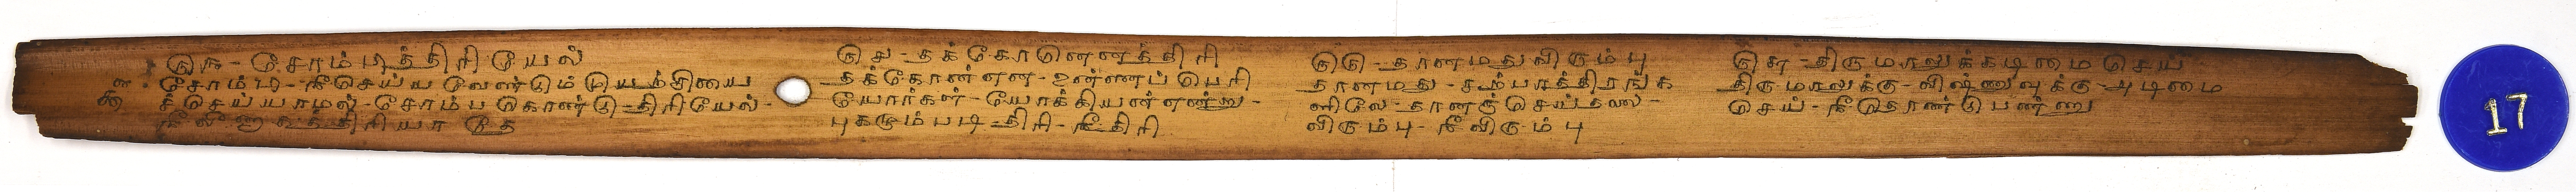 ௫௩ - சோம்பித்திரியேல்
சோம்பி - நீசெய்ய வேண்டும் முயற்சியை
ச்செய்யாமல் - சோம்பகொண்டு - திரியேல் -
நீ வீணாகத்திரியாதே
௫௪ - தக்கோனெனத்திரி
தக்கோன்என - உன்னைப் பெரி
யோர்கள் - யோக்கியன்என்று -
புகழும்படி - திரி - நீதிரி
௫௫ - தானமதுவிரும்பு
தானமது - சற்பாத்திரங்க
ளிலே - தானஞ்செய்தலை -
விரும்பு - நீவிரும்பு
௫௬ - திருமாலுக்கடிமைசெய்
திருமாலுக்கு - விஷ்ணுவுக்கு - அடிமை
செய் - நீதொண்டுபண்ணு
17